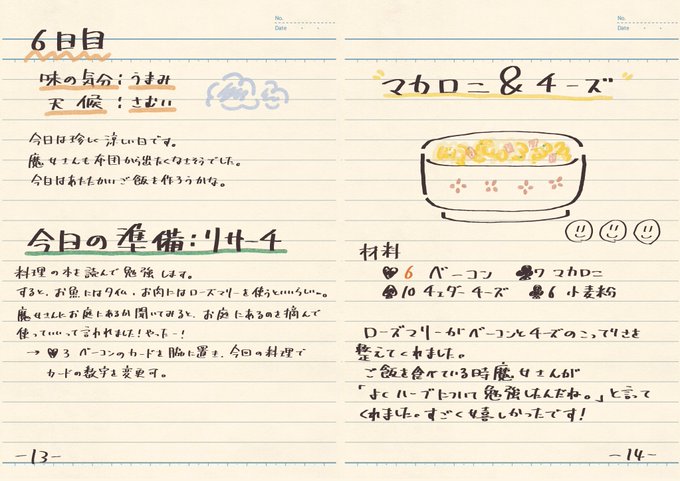 No.
Date
6日目
味の気分:うまみ
天候:さむい
今日は珍しく涼しい日です。
魔女さんも布団から出たくなさそうでした。
今日はあたたかいご飯を作ろうかな。
今日の準備:リサーチ
料理の本を読んで勉強します。
すると、お魚にはタイム、お肉にはローズマリーを使うといいらしい〜。
魔女さんにお庭にあるか聞いてみると、お庭にあるのを摘んで
使っていいって言われました!やったー!
→ ♥3 ベーコンのカードを脇に置き、今回の料理で
カードの数字を変更す。
-13-
No.
Date
マカロニ&チーズ
材料
♥6 ベーコン ♣7 マカロニ
♣10 チェダーチーズ ♣6 小麦粉
ローズマリーがベーコンとチーズのこってりさを
整えてくれました。
ご飯を食べている時魔女さんが
「よくハーブについて勉強したんだね。」と言って
くれました。すごく嬉しかったです!
-14-